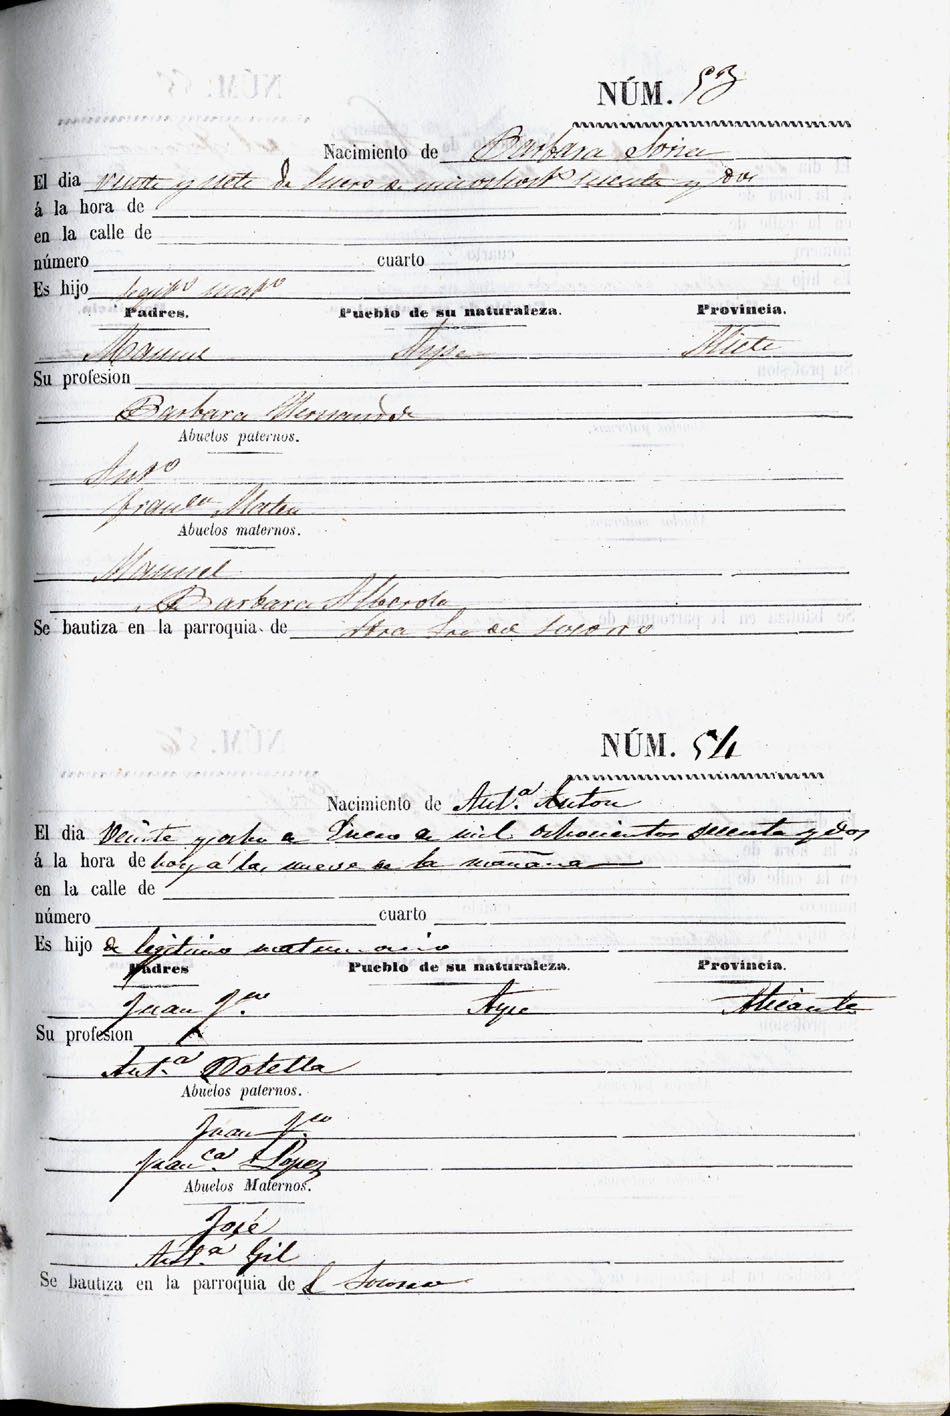 NÚM. 53
Nacimiento de Barbara Soria
El dia veinte y siete de Enero de mil ochocientos sesenta y dos
á la hora de
en la calle de
número cuarto
Es hijo legito mato
Padres. Pueblo de su naturaleza. Provincia.
Manuel Aspe Alicte
Su profesion
Barbara Hernandez
Abuelos paternos.
Anto
Franca Mateu
Abuelos maternos.
Manuel
Barbara Alberola
Se bautiza en la parroquia de Ntra Sra del Socorro
NÚM. 54
Nacimiento de Ant.a Anton
El dia Veinte y ocho de Enero de mil ochocientos sesenta y dos
á la hora de hoy á las nueve de la mañana
en la calle de
número cuarto
Es hijo de legitimo matrimonio
Padres Pueblo de su naturaleza. Provincia.
Juan Aspe Alicante
Su profesion
Ant.a Botella
Abuelos paternos.
Juan
Fran.ca Lopez
Abuelos Maternos.
José
Ant.a Gil
Se bautiza en la parroquia de el Socorro